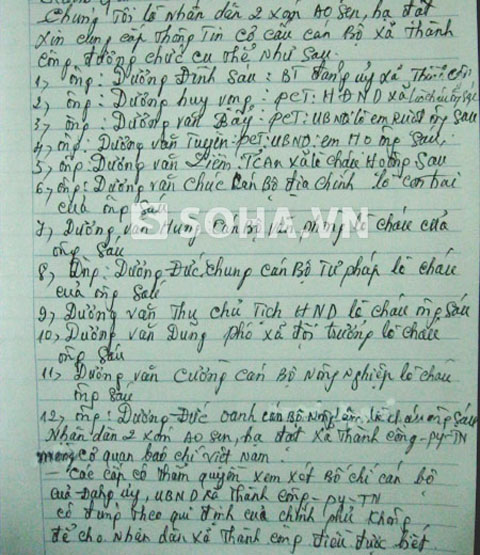 Chúng Tôi là Nhân dân 2 xóm Ao Sen, hạ đạt
xin cung cấp Thông Tin cơ cấu cán Bộ xã Thành
công đương chức cụ thể Như Sau:
1, ông: Dương Đình Sáu: BT đảng ủy xã Thành công
2, ông: Dương huy vọng: PCT: HĐND xã là cháu ông Sáu
3, ông: Dương văn Bảy: PCT: UBND là em Ruột ông Sáu
4, ông: Dương văn Tuyên: PCT: UBND: em Họ ông Sáu,
5, ông: Dương văn Liêm TCAN xã là cháu Họ ông Sáu
6, ông: Dương văn chức Cán Bộ địa chính là con trai
của ông Sáu
SOHA.VN
7, Dương văn Hùng cán Bộ văn phòng là cháu của
ông Sáu
8, Ông: Dương Đức chung cán Bộ Tư pháp là cháu
của ông Sáu
9, Dương văn Thụ chủ Tịch HND là cháu ông Sáu
10, Dương văn Dũng phó xã đội trưởng là cháu
ông Sáu
11, Dương văn Cường cán Bộ Nông Nghiệp là cháu
ông Sáu
12, ông: Dương Đức oanh cán Bộ Nông lâm, là cháu ông Sáu
Nhân dân 2 xóm AO Sen, hạ đạt xã Thành công - PY-TN
mong cơ quan báo chí Việt Nam
- Các cấp có thẩm quyền xem xét Bố chí cán bộ
của Đảng ủy, UBND xã Thành công - PY-TN
có đúng theo qui định của chính phủ không
để cho Nhân dân xã Thành công điều được biết